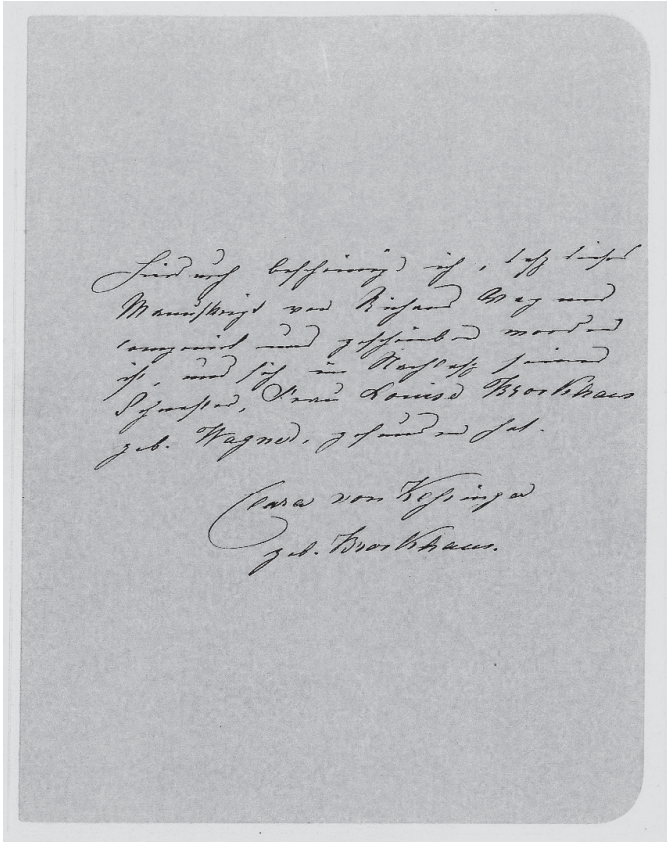 Hierdurch bescheinige ich, daß dieses
Manuskript von Richard Wagner
componiert und geschrieben worden
ist, und sich im Nachlaß seiner
Schwester, Frau Louise Brockhaus
geb. Wagner, gefunden hat.
Clara von Kessinger
geb. Brockhaus.